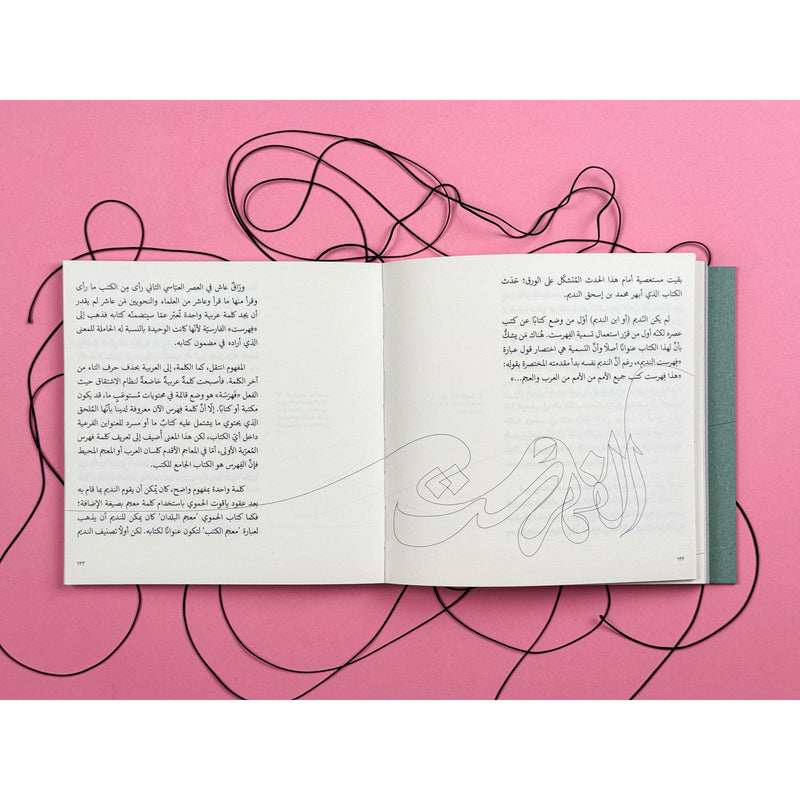 بقيت مستعصية أمام هذا الحدث المُتشكّل على الورق؛ حَدَث
الكتاب الذي أبهر محمد بن إسحق النديم.
لم يكن النّديم (أو ابن النديم) أوّل من وضع كتابًا عن كتب
عصره لكنّه أول من قرّر استعمال تسمية الفِهرست. هُناك مَن يشكُّ
بأنَّ لهذا الكتاب عنوانًا أصلًا وأنَّ التّسمية هي اختصار قول عبارة
«فِهرست النديم»، رغم أنَّ النديم نفسه بدأ مقدمته المختصرة بقوله:
«هذا فِهرست كتب جميع الأمم من الأمم من العرب والعجم...»
الفهرست
١٢٢
ورّاقٌ عاش في العصر العبّاسي الثاني رأى مِن الكتب ما رأى
وقرأ منها ما قرأ وعاشر من العلماء والنحويين مَن عاشر لم يقدر
أن يجد كلمة عربية واحدة تُعبّر عمّا سيتضمنّه كتابه فذهب إلى
«فِهرست» الفارسيّة لأنّها كانت الوحيدة بالنسبة له الحاملة للمعنى
الذي أراده في مضمون كتابه.
المفهوم انتقل، كما الكلمة، إلى العربية بحذف حرف التاء من
آخر الكلمة. فأصبحت كلمةً عربيةً خاضعةً لنظام الاشتقاق حيث
الفعل «فَهْرَسَة» هو وضع قائمة في محتويات مُستوعَبٍ ما، قد يكون
مكتبة أو كتابًا. إلّا أنَّ كلمة فِهرِس الآن معروفة لدينا بأنّها المُلحق
الذي يحتوي ما يشتمل عليه كتابٌ ما أو مسرد للعناوين الفرعية
داخل أيّ الكتاب، لكن هذا المعنى أُضيف إلى تعريف كلمة فهرس
المُعرّبة الأولى، أمّا في المعاجم الأقدم كلسان العرب أو المعجم المحيط
فإنَّ الفِهرِس هو الكتاب الجامع للكتب.
كلمة واحدة بمفهوم واضح، كان يُمكن أن يقوم النديم بما قام به
بعد عقودٍ ياقوت الحموي باستخدام كلمة معجم بصيغة الإضافة؛
فكما كتاب الحموي 'معجم البلدان' كان يمكن للنديم أن يذهب
لعبارة 'معجم الكتب' لتكون عنوانًا لكتابه. لكن أولًا تصنيف النديم
١٢٣